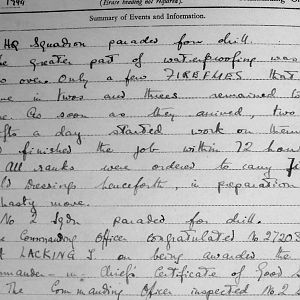 1944
(Erase heading not required).
Commanding O
Summary of Events and Information.
HQ Squadron paraded for drill.
greater part of waterproofing was
over. Only a few FIREFLIES that
in twos and threes remained to
As soon as they arrived, two
a day started work on them
finished the job within 72 hour
All ranks were ordered to carry
Dressings henceforth, in preparation
hasty move.
No 2 Sqdn paraded for drill.
Commanding Officer congratulated No 27208
LACKING J. on being awarded the
- in - Chief's Certificate of Good S
The Commanding Officer inspected No. 2